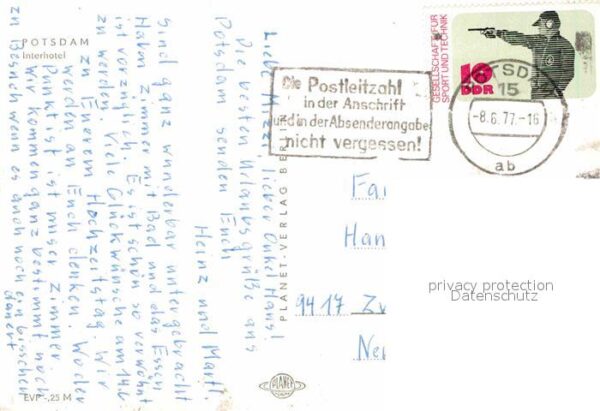 POTSDAM
Interhotel
Die Postleitzahl
in der Anschrift
und in der Absenderangabe
nicht vergessen!
GESELLSCHAFT FÜR
SPORT UND TECHNIK
10
DDR
15
-8.6.77.-16
ab
Liebe Mizzi, lieber Onkel Hans!
Die besten Urlaubsgrüße aus
Potsdam senden Euch
Heinz und
Sind ganz wunderbar untergebracht
Haben Zimmer mit Bad und das Essen
ist vorzüglich. Es ist schön so verwöhnt
zu werden. Viele Glückwünsche am 14.6.
zu Eurem Hochzeitstag. Wir
werden an Euch denken.
Punkt ist ist unser Zimmer.
Wir kommen ganz bestimmt noch
zu Besuch wenn es auch noch ein bisschen
dauert
PLANET-VERLAG BERLIN
Fa
Han
9417 Zw
Neu
privacy protection
Datenschutz
PLANET
EVP -,25 M